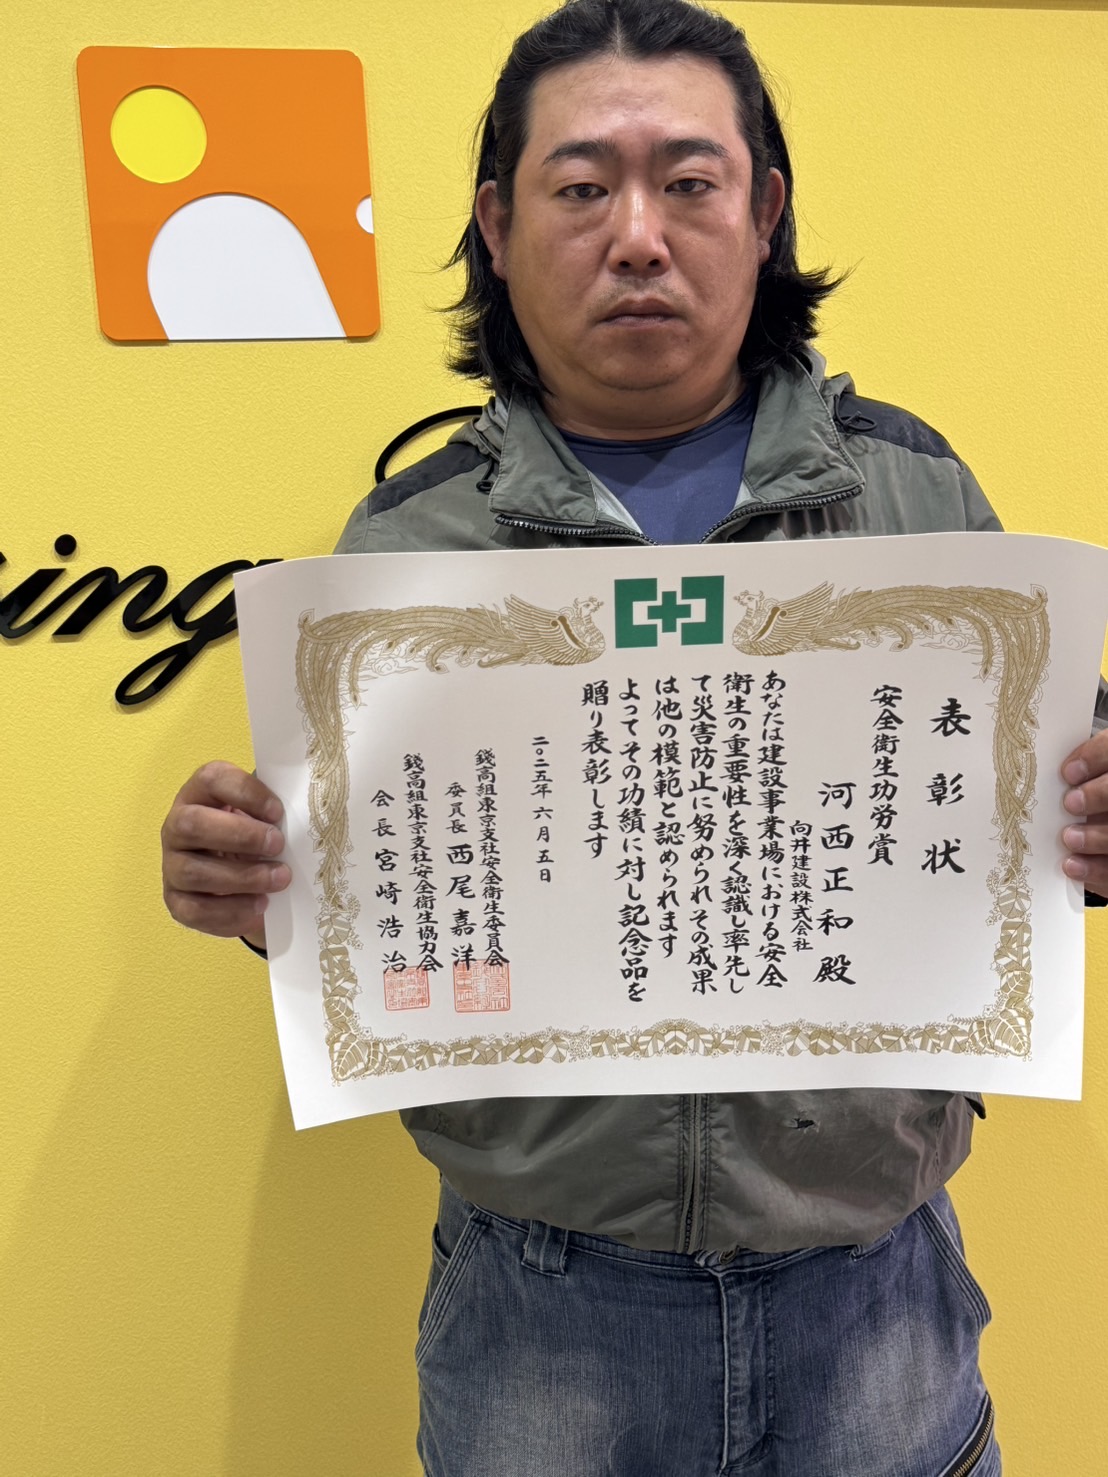 表彰状
安全衛生功労賞
向井建設株式会社
河西正和殿
あなたは建設事業場における安全
衛生の重要性を深く認識し率先し
て災害防止に努められその成果
は他の模範と認められます
よってその功績に対し記念品を
贈り表彰します
二〇二五年六月五日
錢高組東京支社安全衛生委員会
委員長 西尾嘉洋
錢高組東京支社安全衛生協力会
会長 宮崎浩治
ing